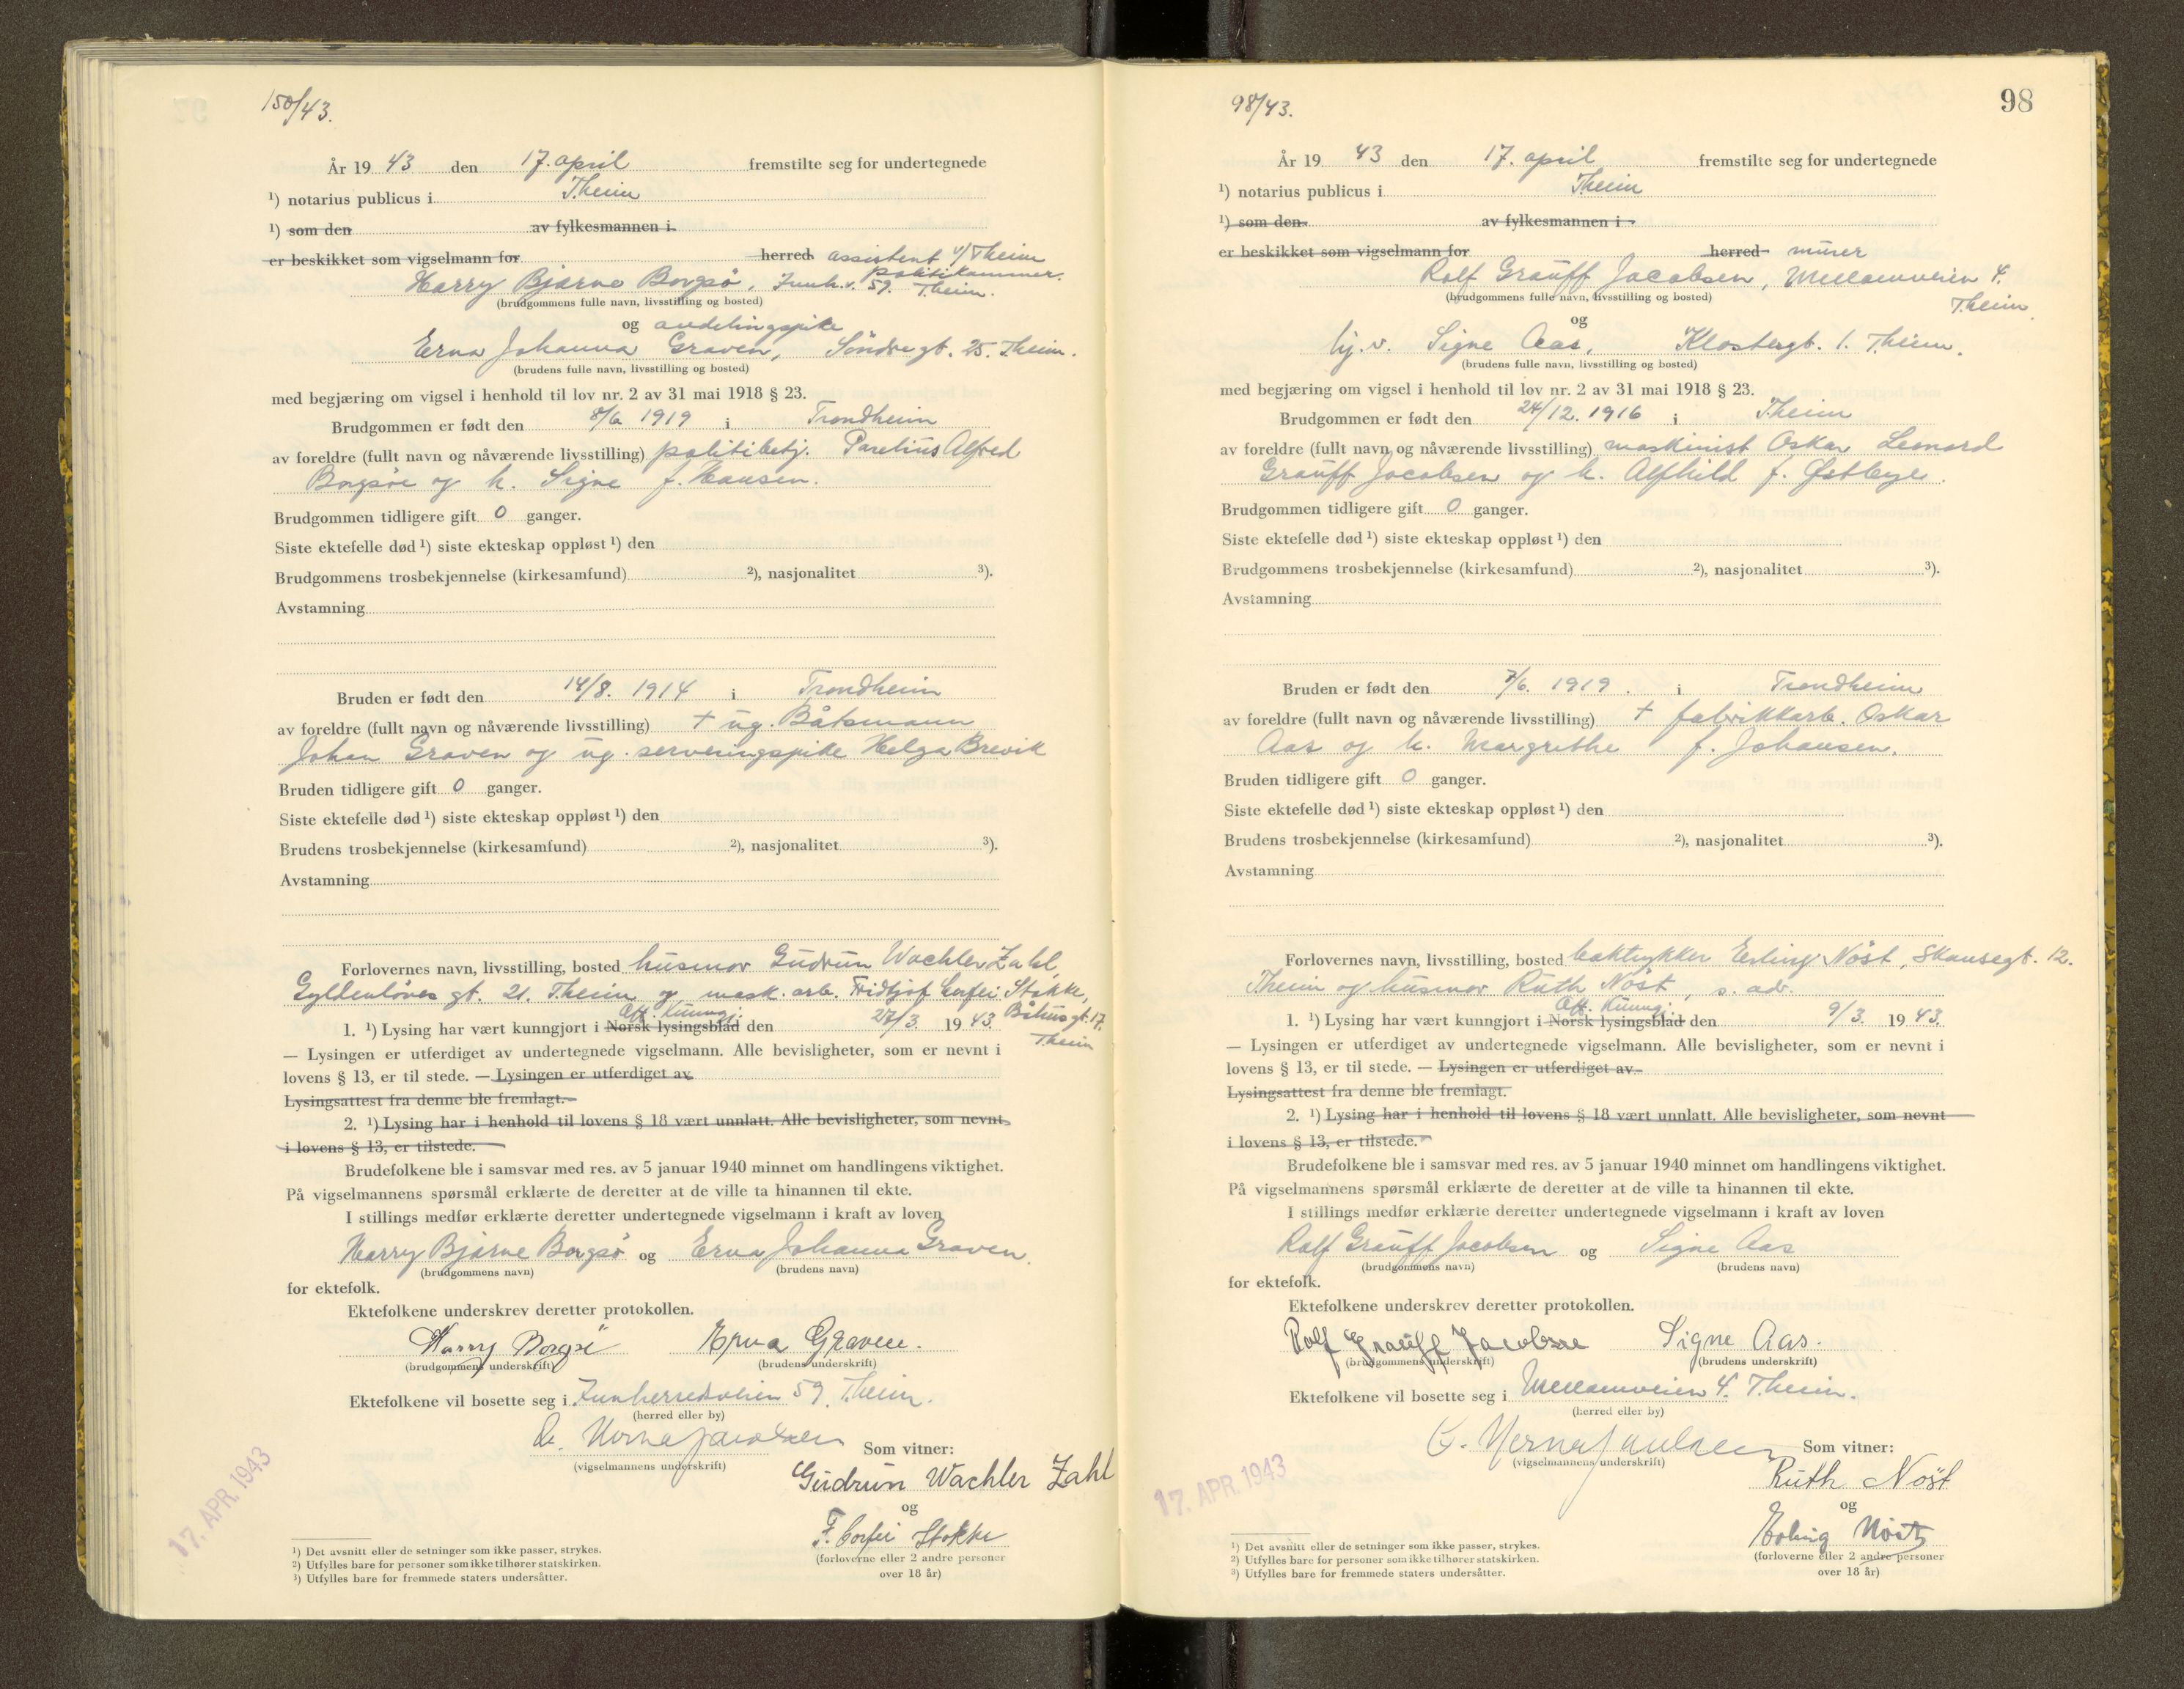 150/43.
År 19 43 den 17. april fremstilte seg for undertegnede
¹) notarius publicus i Theim
¹) som den av fylkesmannen i
er beskikket som vigselmann for herred assistent v/Theim
politikammer.
Harry Bjarne Borgsö, Innh.v. 59. Theim.
(brudgommens fulle navn, livsstilling og bosted)
og avdelingspike
Erna Johanna Graven, Söndregt. 25. Theim.
(brudens fulle navn, livsstilling og bosted)
med begjæring om vigsel i henhold til lov nr. 2 av 31 mai 1918 § 23.
Brudgommen er født den 8/6 1919 i Trondheim
av foreldre (fullt navn og nåværende livsstilling) politibetj. Parelius Alfred
Borgsöe og h. Signe f. Hansen.
Brudgommen tidligere gift 0 ganger.
Siste ektefelle død ¹) siste ekteskap oppløst ¹) den
Brudgommens trosbekjennelse (kirkesamfund) ²), nasjonalitet ³).
Avstamning
Bruden er født den 14/8. 1914 i Trondheim
av foreldre (fullt navn og nåværende livsstilling) + ug. Båtsmann
Johan Graven og ug. serveringspike Helga Brevik
Bruden tidligere gift 0 ganger.
Siste ektefelle død ¹) siste ekteskap oppløst ¹) den
Brudens trosbekjennelse (kirkesamfund) ²), nasjonalitet ³).
Avstamning
Forlovernes navn, livsstilling, bosted husmor Gudrun Wachler Zahl,
Gyldenlöves gt. 21. Theim og mask. arb. Fridtjof Corfei Stokke,
Off. Kunngj. Båhusgt. 17.
1. ¹) Lysing har vært kunngjort i Norsk lysingsblad den 27/3. 19 43.
Theim
— Lysingen er utferdiget av undertegnede vigselmann. Alle bevisligheter, som er nevnt i
lovens § 13, er til stede. — Lysingen er utferdiget av
Lysingsattest fra denne ble fremlagt.
2. ¹) Lysing har i henhold til lovens § 18 vært unnlatt. Alle bevisligheter, som nevnt
i lovens § 13, er tilstede.
Brudefolkene ble i samsvar med res. av 5 januar 1940 minnet om handlingens viktighet.
På vigselmannens spørsmål erklærte de deretter at de ville ta hinannen til ekte.
I stillings medfør erklærte deretter undertegnede vigselmann i kraft av loven
Harry Bjarne Borgsö og Erna Johanna Graven.
(brudgommens navn) (brudens navn)
for ektefolk.
Ektefolkene underskrev deretter protokollen.
Harry Borgsö Erna Graven.
(brudgommens underskrift) (brudens underskrift)
Ektefolkene vil bosette seg i Innherredsveien 59. Theim.
(herred eller by)
Som vitner:
(vigselmannens underskrift)
Gudrun Wachler Zahl
og
F. Corfei Stokke
(forloverne eller 2 andre personer
over 18 år)
17. APR. 1943
¹) Det avsnitt eller de setninger som ikke passer, strykes.
²) Utfylles bare for personer som ikke tilhører statskirken.
³) Utfylles bare for fremmede staters undersåtter.
98/43.
98
År 19 43 den 17. april fremstilte seg for undertegnede
¹) notarius publicus i Theim
¹) som den av fylkesmannen i
er beskikket som vigselmann for herred murer
Rolf Grauff Jacobsen, Mellomveien 4.
(brudgommens fulle navn, livsstilling og bosted) Theim.
og
hj.v. Signe Aas, Klostergt. 1. Theim.
(brudens fulle navn, livsstilling og bosted)
med begjæring om vigsel i henhold til lov nr. 2 av 31 mai 1918 § 23.
Brudgommen er født den 24/12. 1916 i Theim
av foreldre (fullt navn og nåværende livsstilling) maskinist Oskar Leonard
Grauff Jacobsen og h. Alfhild f. Østbye.
Brudgommen tidligere gift 0 ganger.
Siste ektefelle død ¹) siste ekteskap oppløst ¹) den
Brudgommens trosbekjennelse (kirkesamfund) ²), nasjonalitet ³).
Avstamning
Bruden er født den 7/6. 1919. i Trondheim
av foreldre (fullt navn og nåværende livsstilling) + fabrikkarb. Oskar
Aas og h. Margrethe f. Johansen.
Bruden tidligere gift 0 ganger.
Siste ektefelle død ¹) siste ekteskap oppløst ¹) den
Brudens trosbekjennelse (kirkesamfund) ²), nasjonalitet ³).
Avstamning
Forlovernes navn, livsstilling, bosted boktrykker Erling Nöst, Skansegt. 12.
Theim og husmor Ruth Nöst, s. adr.
Off. Kunngj.
1. ¹) Lysing har vært kunngjort i Norsk lysingsblad den 9/3. 19 43.
— Lysingen er utferdiget av undertegnede vigselmann. Alle bevisligheter, som er nevnt i
lovens § 13, er til stede. — Lysingen er utferdiget av
Lysingsattest fra denne ble fremlagt.
2. ¹) Lysing har i henhold til lovens § 18 vært unnlatt. Alle bevisligheter, som nevnt
i lovens § 13, er tilstede.
Brudefolkene ble i samsvar med res. av 5 januar 1940 minnet om handlingens viktighet.
På vigselmannens spørsmål erklærte de deretter at de ville ta hinannen til ekte.
I stillings medfør erklærte deretter undertegnede vigselmann i kraft av loven
Rolf Grauff Jacobsen og Signe Aas
(brudgommens navn) (brudens navn)
for ektefolk.
Ektefolkene underskrev deretter protokollen.
Rolf Grauff Jacobsen Signe Aas.
(brudgommens underskrift) (brudens underskrift)
Ektefolkene vil bosette seg i Mellomveien 4. Theim.
(herred eller by)
Som vitner:
(vigselmannens underskrift)
Ruth Nöst
og
Erling Nöst
(forloverne eller 2 andre personer
over 18 år)
17. APR. 1943
¹) Det avsnitt eller de setninger som ikke passer, strykes.
²) Utfylles bare for personer som ikke tilhører statskirken.
³) Utfylles bare for fremmede staters undersåtter.